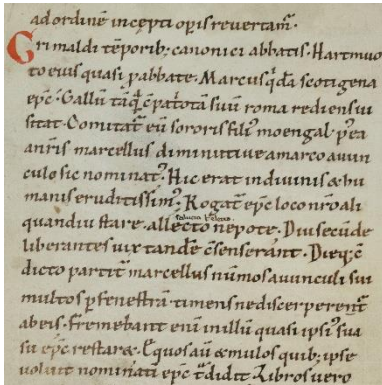 ad ordinē incepti opis revertam᷑.
Grimaldi tēporib; canonici abbatis. Hartmuo
to eius quasi pabbate. Marcus qdā scotigena
epc̄. Gallū tāq̄ cpatotā suū roma rediens vi
sitat. Comitat᷑ eū sororis fili᷒ moengal. pea
anris marcellus diminutive a marco avun
culo sic nominat᷒. Hic erat in divinis & hu
manis eruditissim᷒. Rogat᷑ epc̄ loco nr̄o ali
quandiu stare. allecto nepote. Diu secū de
liberantes vix tandē c̄senserant. Dieq; c̄
dicto partit᷑ marcellus nūmos avunculi sui
multos p fenestrā. timens ne discerperent᷑
ab eis. Fremebant enī in illū quasi ipsi᷒ sua
su epc̄ restar&. Equos aū & mulos quib; ipse
voluit nominati epc̄ t̄didit. Libros vero